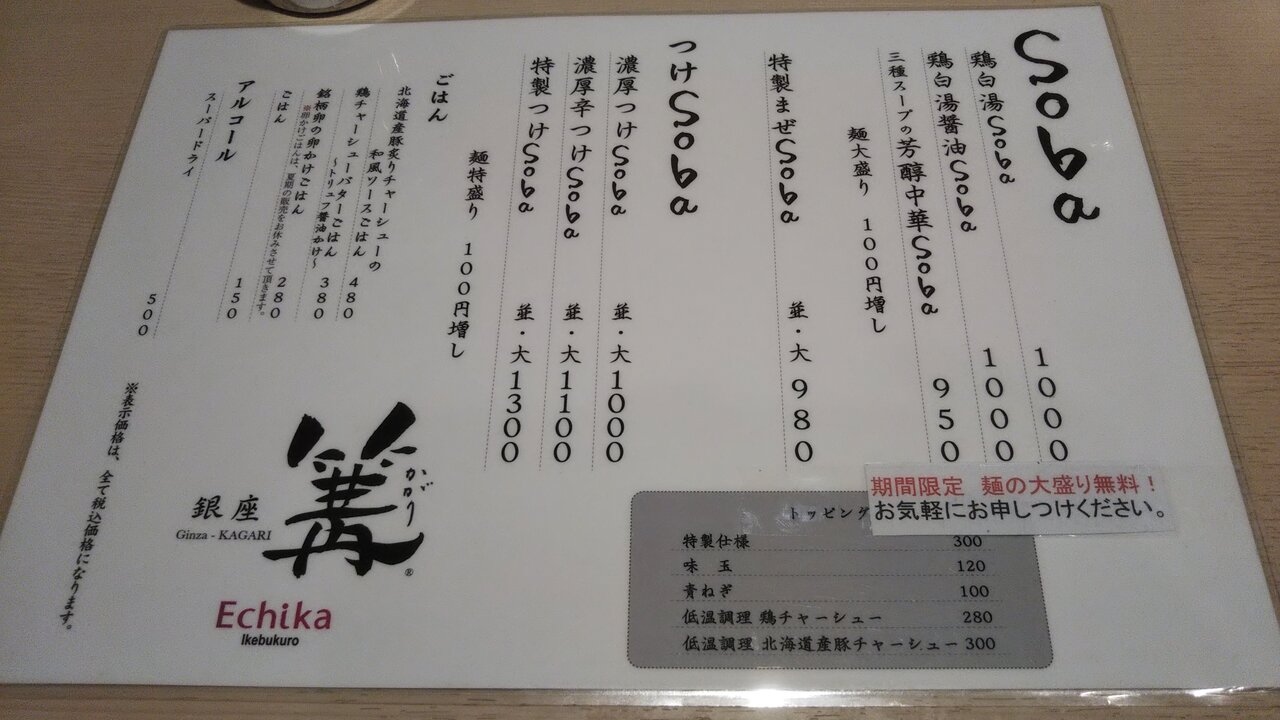 Soba
鶏白湯Soba 1000
鶏白湯醤油Soba 1000
三種スープの芳醇中華Soba 950
麺大盛り 100円増し
特製まぜSoba 並・大 980
つけSoba
濃厚つけSoba 並・大 1000
濃厚辛つけSoba 並・大 1100
特製つけSoba 並・大 1300
麺特盛り 100円増し
ごはん
北海道産豚炙りチャーシューの
和風ソースごはん 480
鶏チャーシューバターごはん
～トリュフ醤油かけ～ 380
銘柄卵の卵かけごはん 280
※卵かけごはんは、夏期の販売をお休みさせて頂きます。
ごはん 150
アルコール
スーパードライ 500
※表示価格は、全て税込価格になります。
期間限定 麺の大盛り無料！
お気軽にお申しつけください。
トッピング
特製仕様 300
味玉 120
青ねぎ 100
低温調理 鶏チャーシュー 280
低温調理 北海道産豚チャーシュー 300
篝
かがり
®
銀座
Ginza - KAGARI
Echika
Ikebukuro